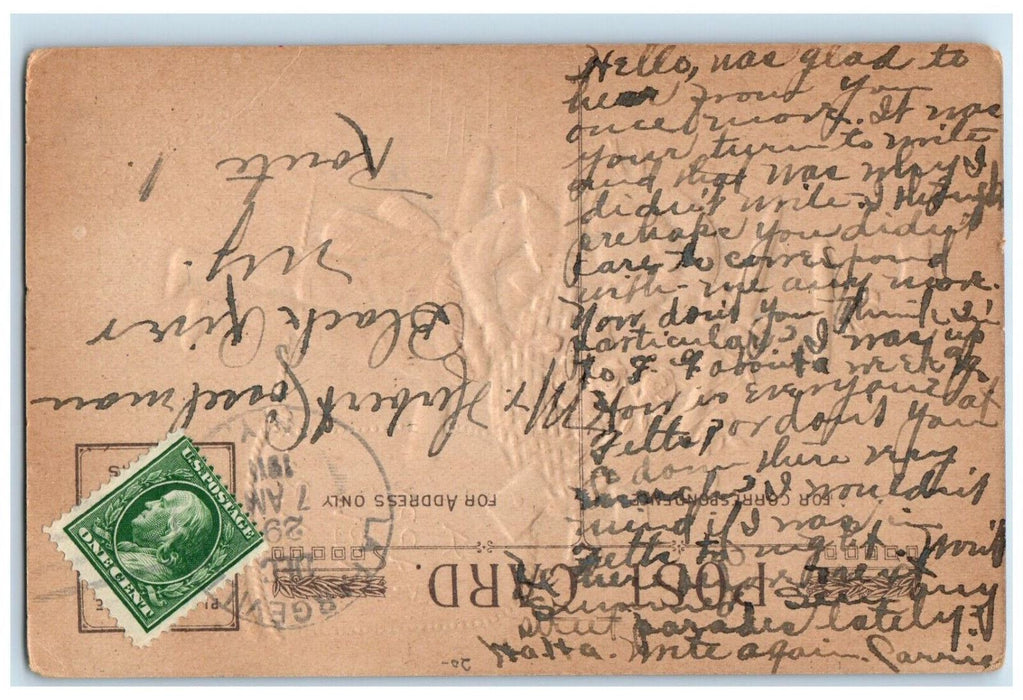 Hello, was glad to
hear from you
once more. It was
your turn to write
and that was why I
didn't write. I thought
perhaps you didn't
care to correspond
with me any more.
Now don't you think I'm
particular? I was up
to F. F. about a week ago
How is everyone at
Felts? or don't you
go down there very
much? I wouldn't
mind if I was in
Felts to night. Won't
there
any
street parades lately?
Ha Ha. Write again. Carrie
POST CARD.
FOR CORRESPONDENCE
FOR ADDRESS ONLY
Mr. Herbert
Black River
N.Y.
Route 1
DEC
29
7 AM
191
N.Y.
U.S. POSTAGE
ONE CENT